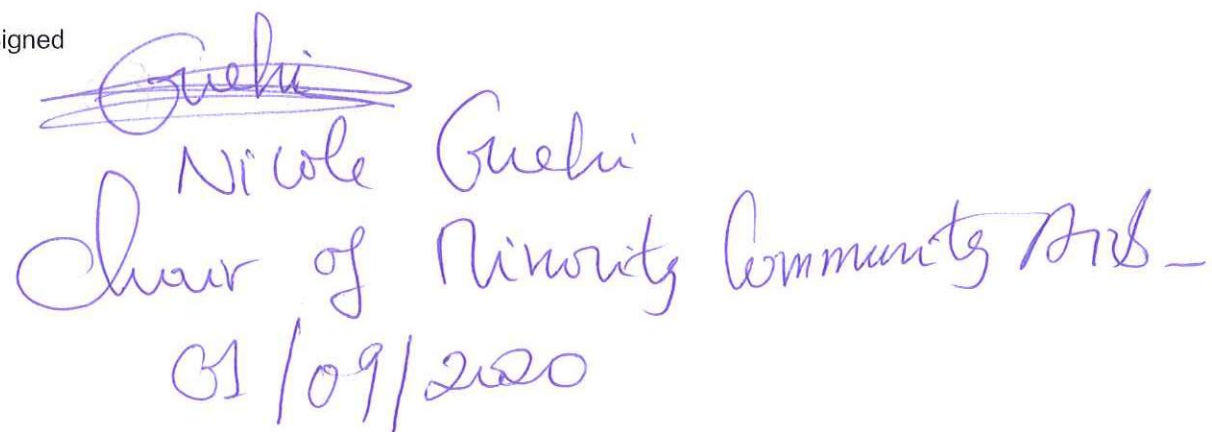 igned
Guehi
Nicole Guehi
Chair of Minority Community Arts
01/09/2020